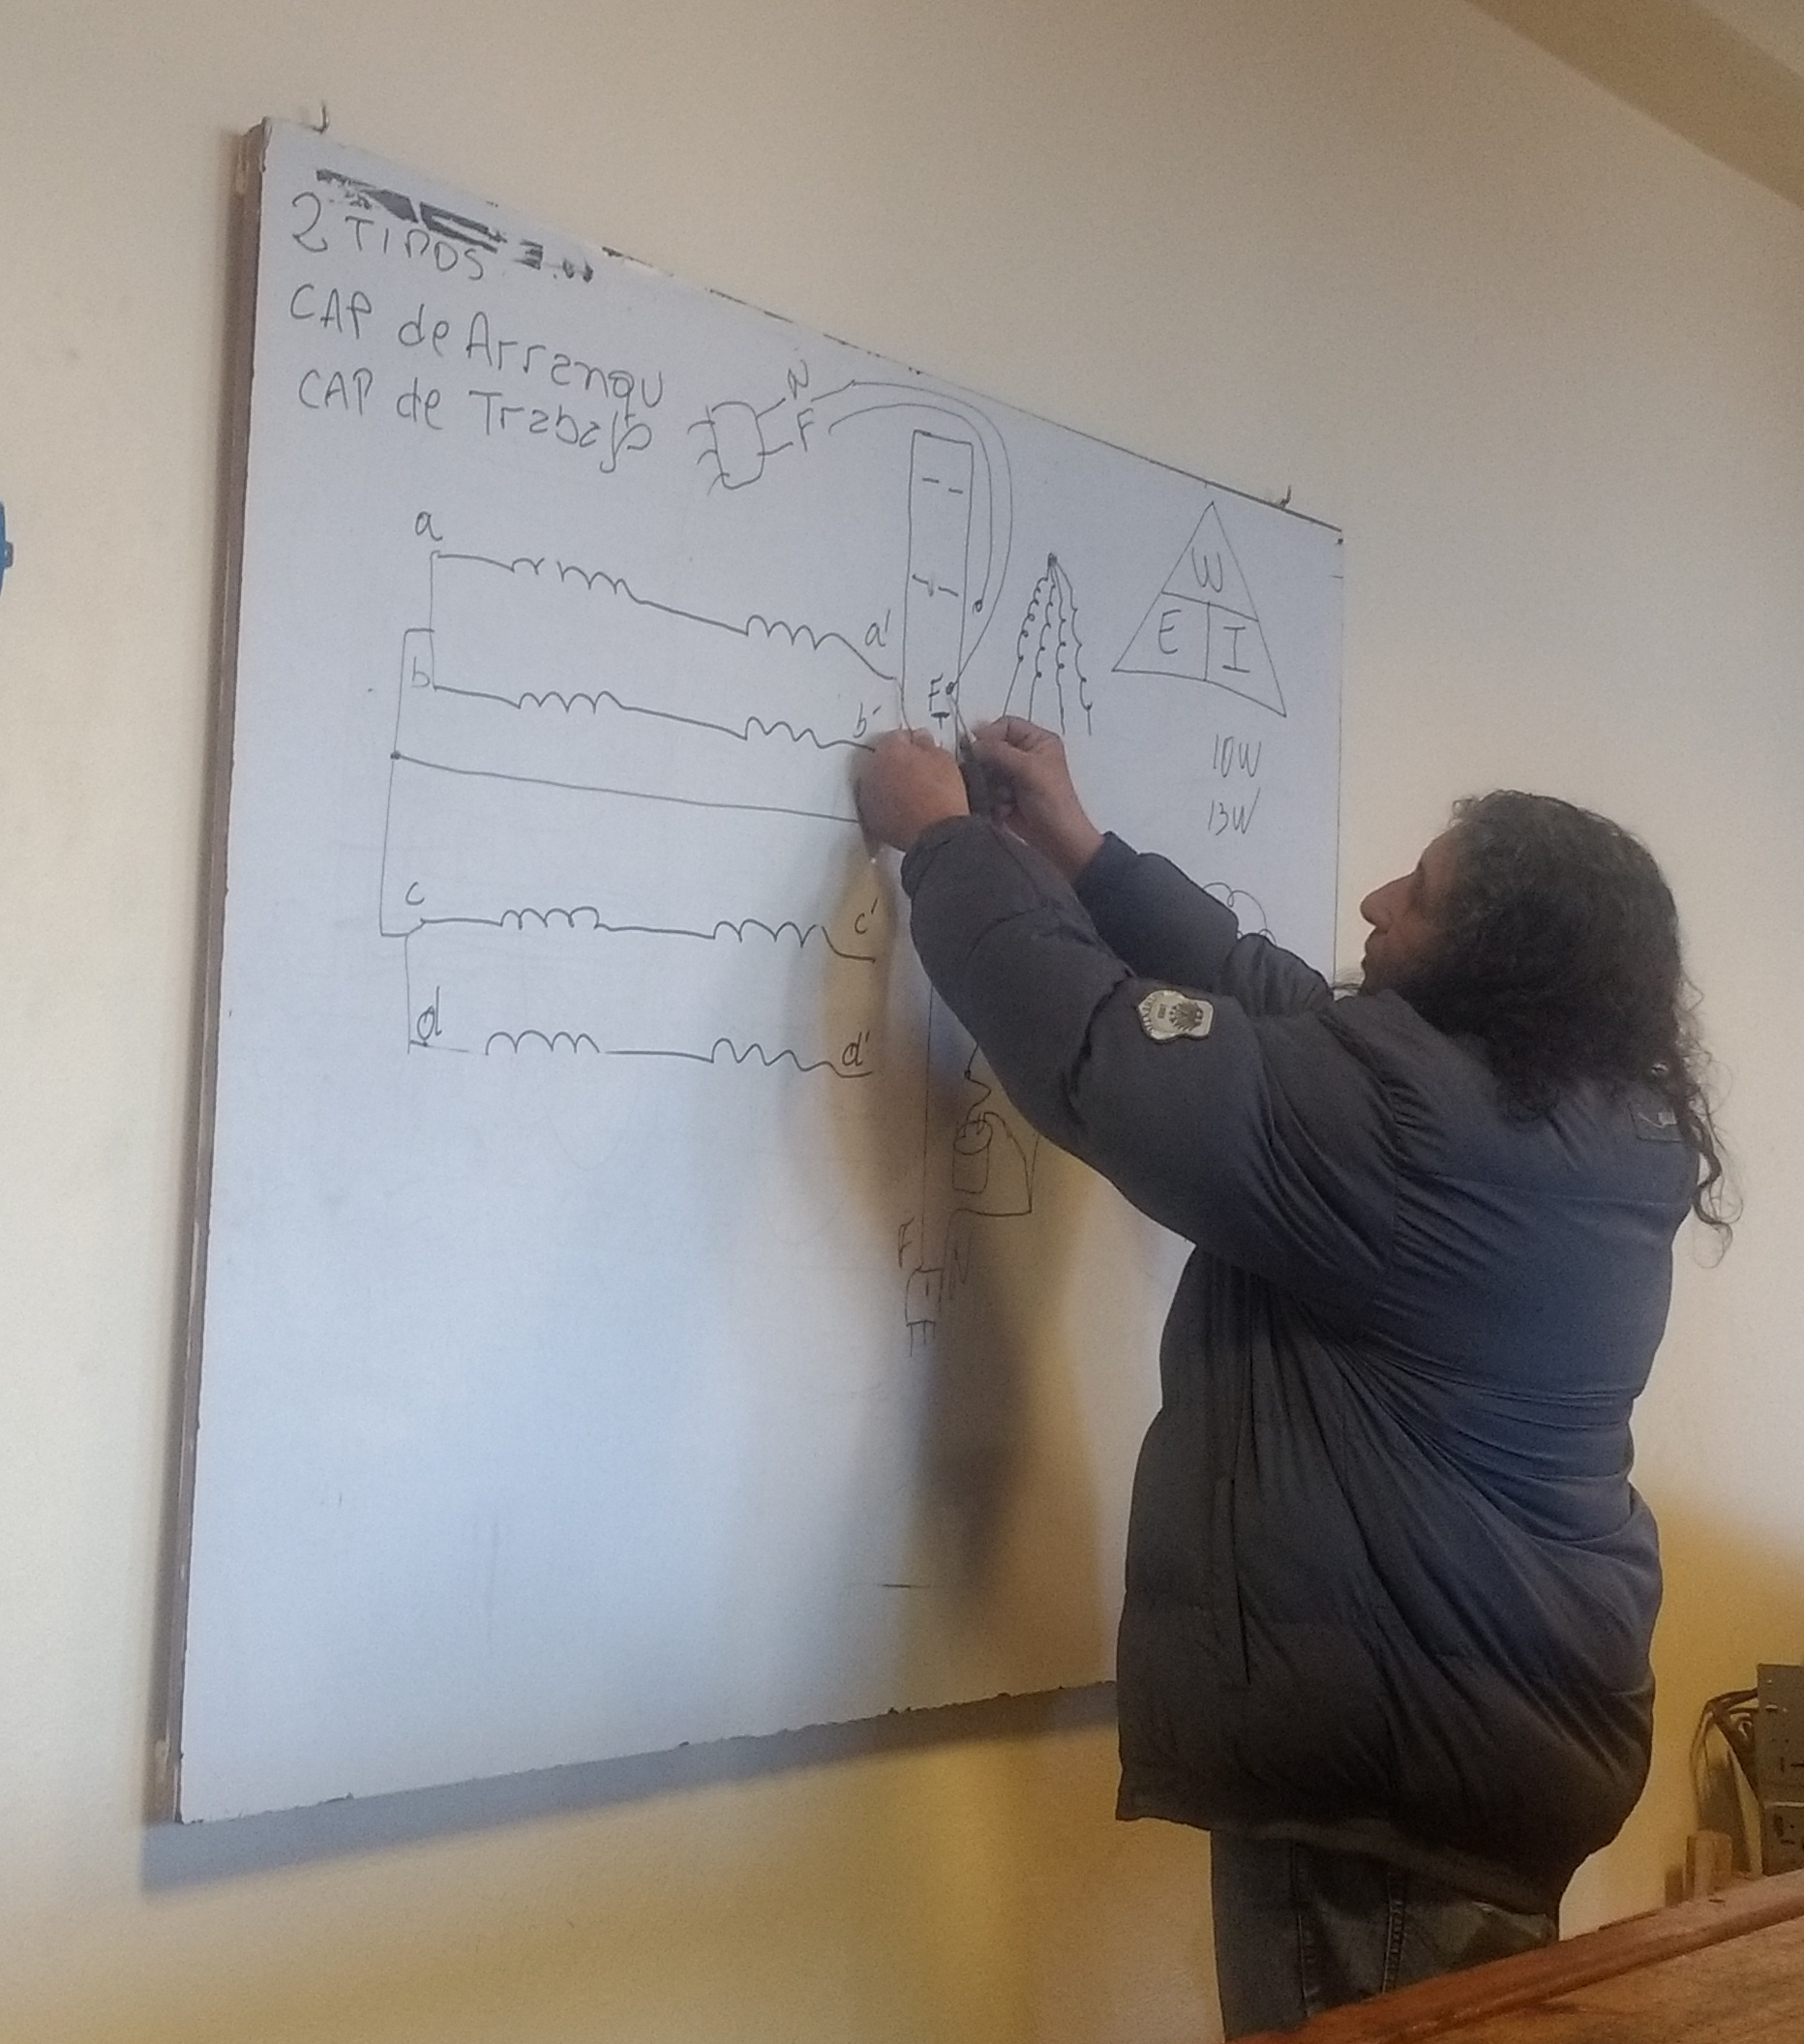 2 TIPOS
CAP de Arranqu
CAP de Trabajo
N
F
a
a'
b
b'
c
c'
d
d'
F
W
E I
10W
13W
F
N